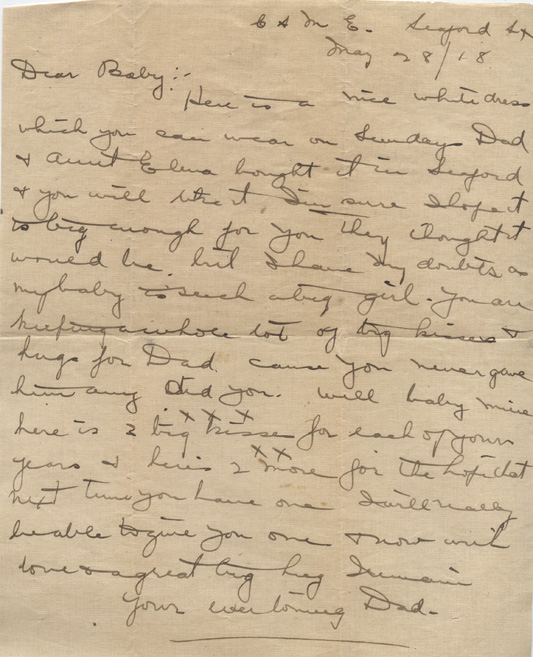 C A M C. Seaford Sx
May 28/18.
Dear Baby:-
Here is a nice white dress
which you can wear on Sundays Dad
& Aunt Elma bought it in Seaford
& you will like it I'm sure I hope it
is big enough for you they thought it
would be. but I have my doubts as
my baby is such a big girl. You are
keeping a whole lot of big kisses &
hugs for Dad. cause you never gave
him any did you. well baby mine
x x x
here is 3 big kisses for each of your
x x
years & here's 2 more for the hope that
next time you have one I will really
be able to give you one & now with
love & a great big hug I remain
Your ever loving Dad.